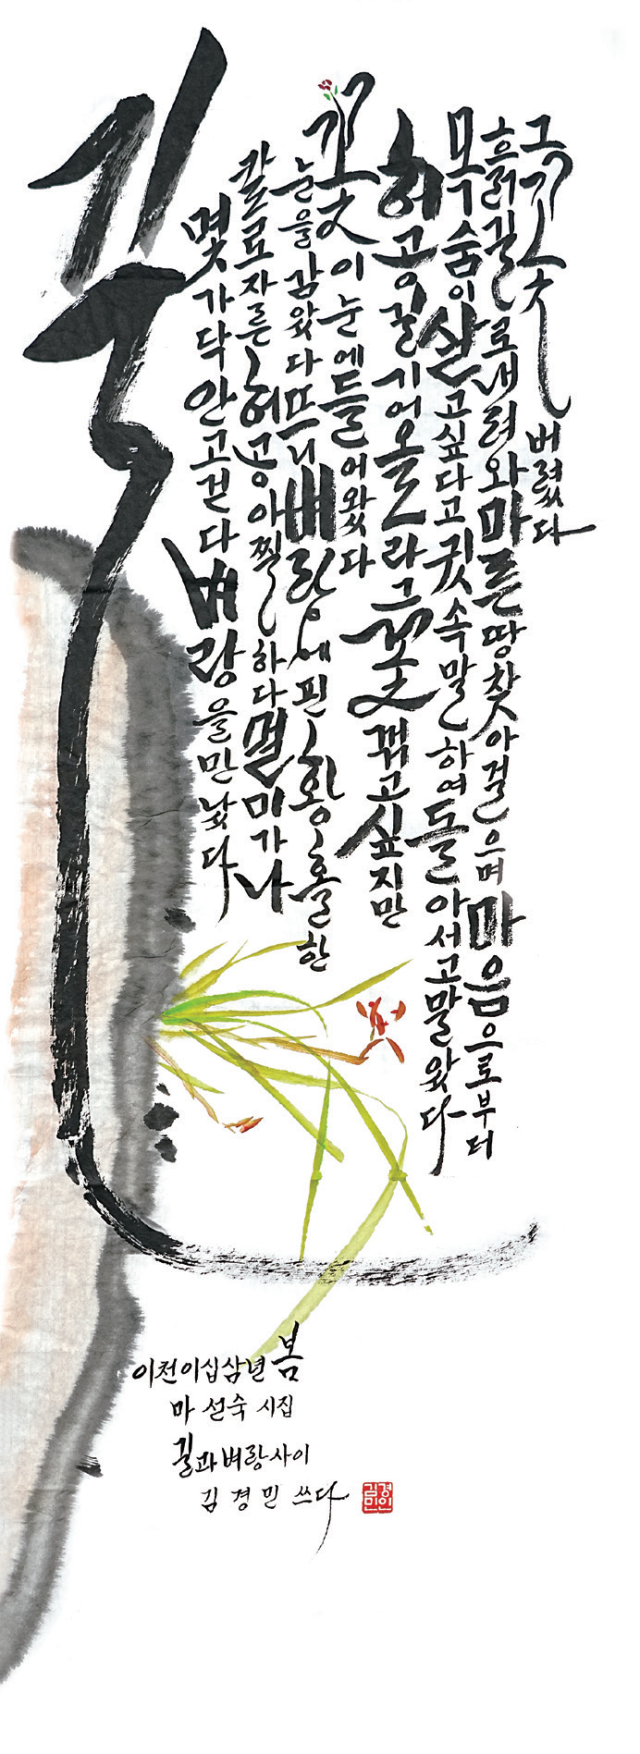 길
몇 가닥 안고 걷다 벼랑을 만났다
칼로 자른 허공 아찔하다 멀미가 나
눈을 감았다 뜨니 벼랑에 핀 황홀한
꽃이 눈에 들어왔다
허공 길 기어올라 그 꽃 꺾고 싶지만
목숨이 살고 싶다고 귓속말하여 돌아서고 말았다
흙길로 내려와 마른 땅 찾아 걸으며 마음으로부터
그 꽃 버렸다
이천이십삼년 봄
마선숙 시집
길과 벼랑사이
김경민 쓰다
김경민